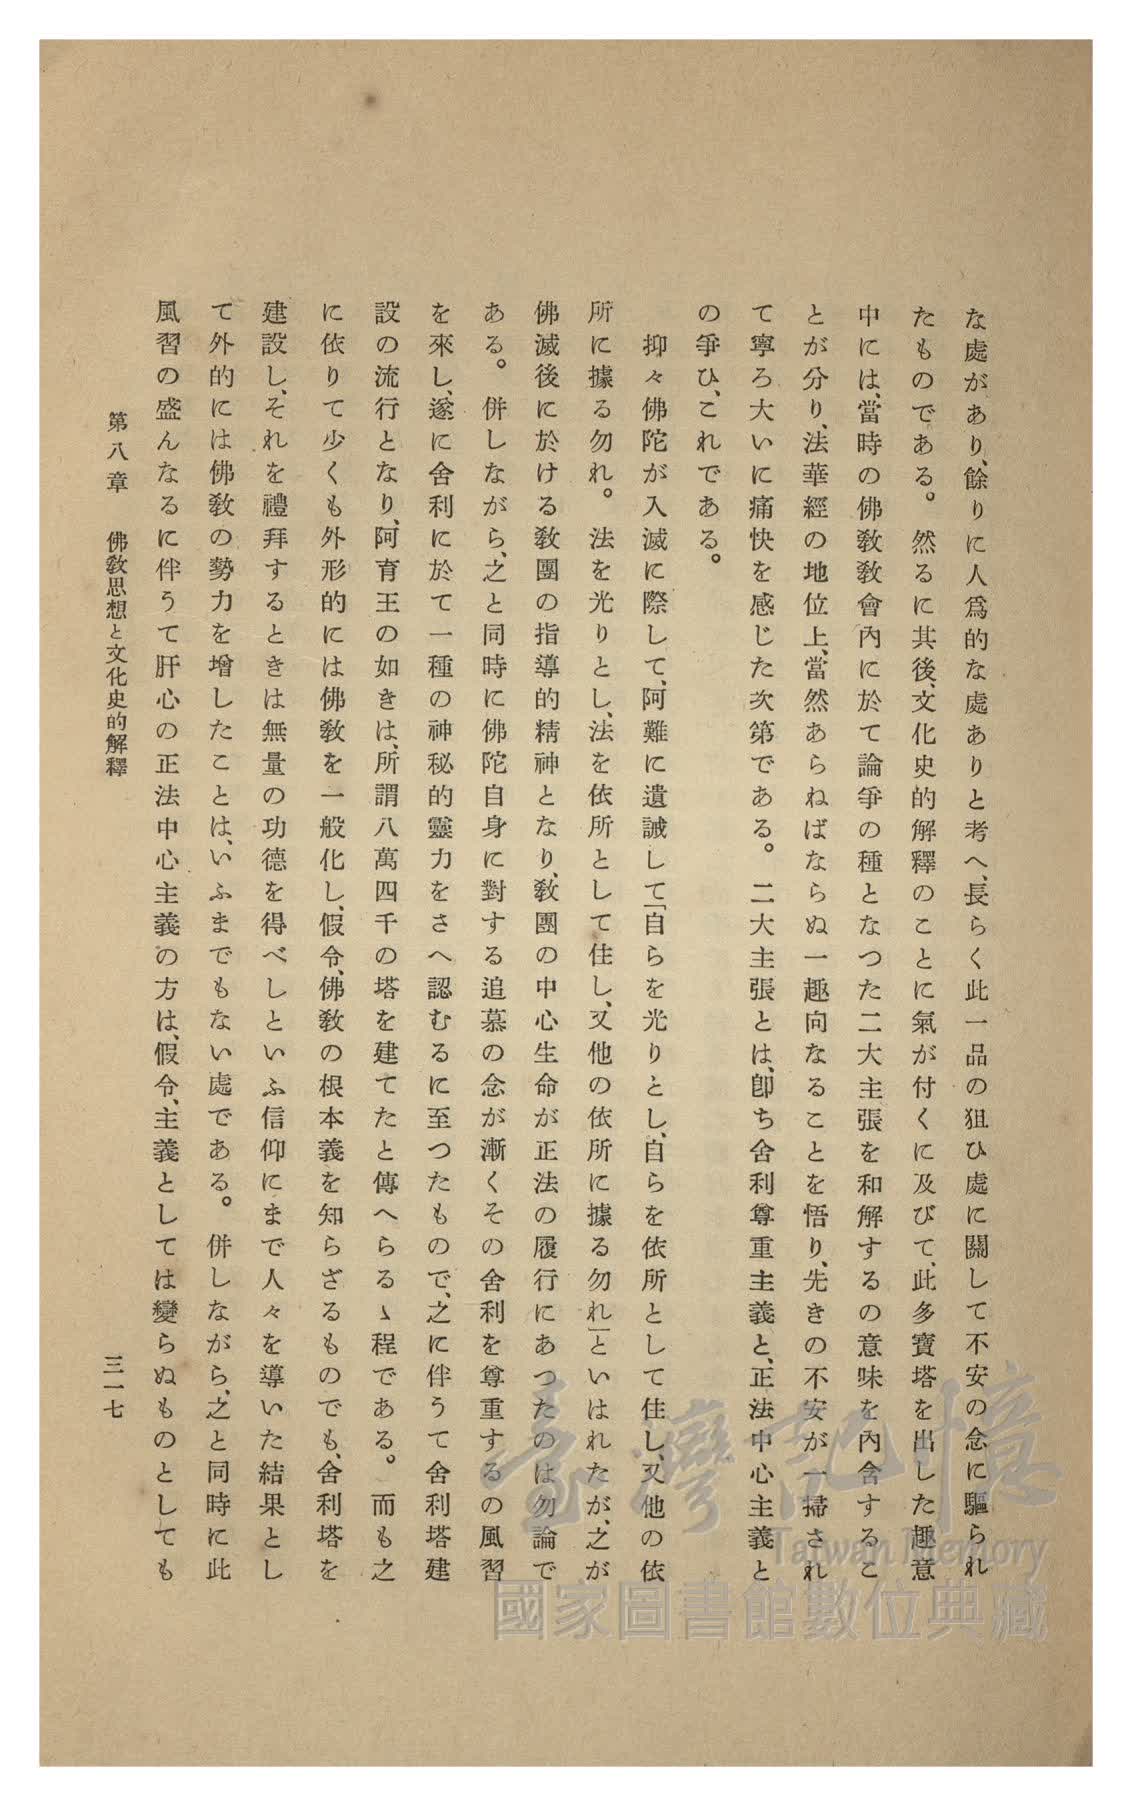 な處があり、餘りに人爲的な處ありと考へ、長らく此一品の狙ひ處に關して不安の念に驅られ
たものである。然るに其後、文化史的解釋のことに氣が付くに及びて、此多寶塔を出した趣意
中には、當時の佛敎敎會內に於て論爭の種となつた二大主張を和解するの意味を內含するこ
とが分り、法華經の地位上、當然あらねばならぬ一趣向なることを悟り、先きの不安が一掃され
て寧ろ大いに痛快を感じた次第である。二大主張とは、卽ち舍利尊重主義と、正法中心主義と
の爭ひ、これである。
抑々佛陀が入滅に際して、阿難に遺誡して「自らを光りとし、自らを依所として住し、又他の依
所に據る勿れ。法を光りとし、法を依所として住し、又他の依所に據る勿れ」といはれたが、之が
佛滅後に於ける敎團の指導的精神となり、敎團の中心生命が正法の履行にあつたのは勿論で
ある。併しながら、之と同時に佛陀自身に對する追慕の念が漸くその舍利を尊重するの風習
を來し、遂に舍利に於て一種の神秘的靈力をさへ認むるに至つたもので、之に伴うて舍利塔建
設の流行となり、阿育王の如きは、所謂八萬四千の塔を建てたと傳へらるゝ程である。而も之
に依りて少くも外形的には佛敎を一般化し、假令、佛敎の根本義を知らざるものでも、舍利塔を
建設し、それを禮拜するときは無量の功德を得べしといふ信仰にまで人々を導いた結果とし
て外的には佛敎の勢力を增したことは、いふまでもない處である。併しながら、之と同時に此
風習の盛んなるに伴うて肝心の正法中心主義の方は、假令、主義としては變らぬものとしても
第八章 佛敎思想と文化史的解釋
三一七
臺灣記憶
Taiwan Memory
國家圖書館數位典藏